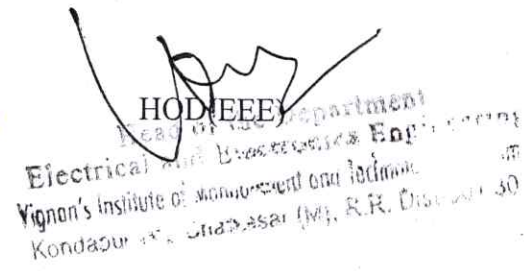 HOD(EEE)
Head of the Department
Electrical and Electronics Engineering
Vignan's Institute of Management and Technology
Kondapur (V), Ghatkesar (M), R.R. Dist